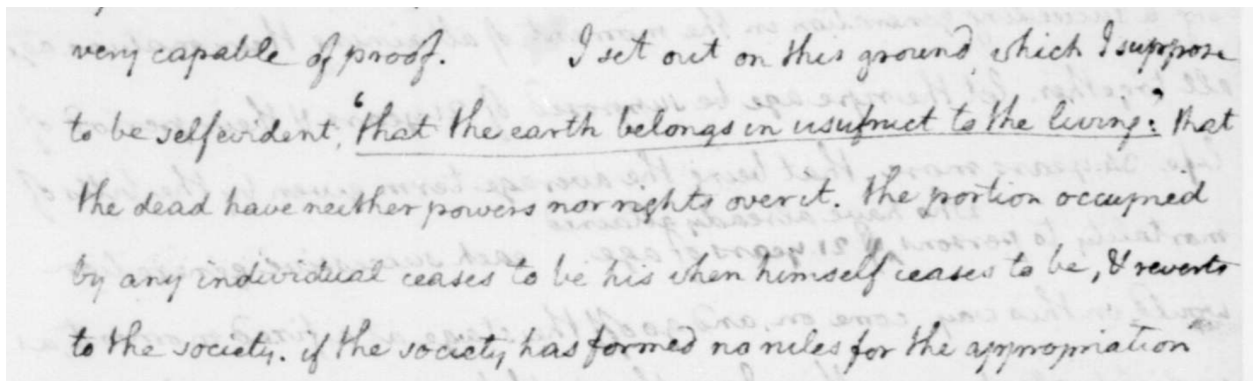 very capable of proof. I set out on this ground, which I suppose
to be self evident, 'that the earth belongs in usufruct to the living:' that
the dead have neither powers nor rights over it. the portion occupied
by any individual ceases to be his when himself ceases to be, & reverts
to the society. if the society has formed no rules for the appropriation